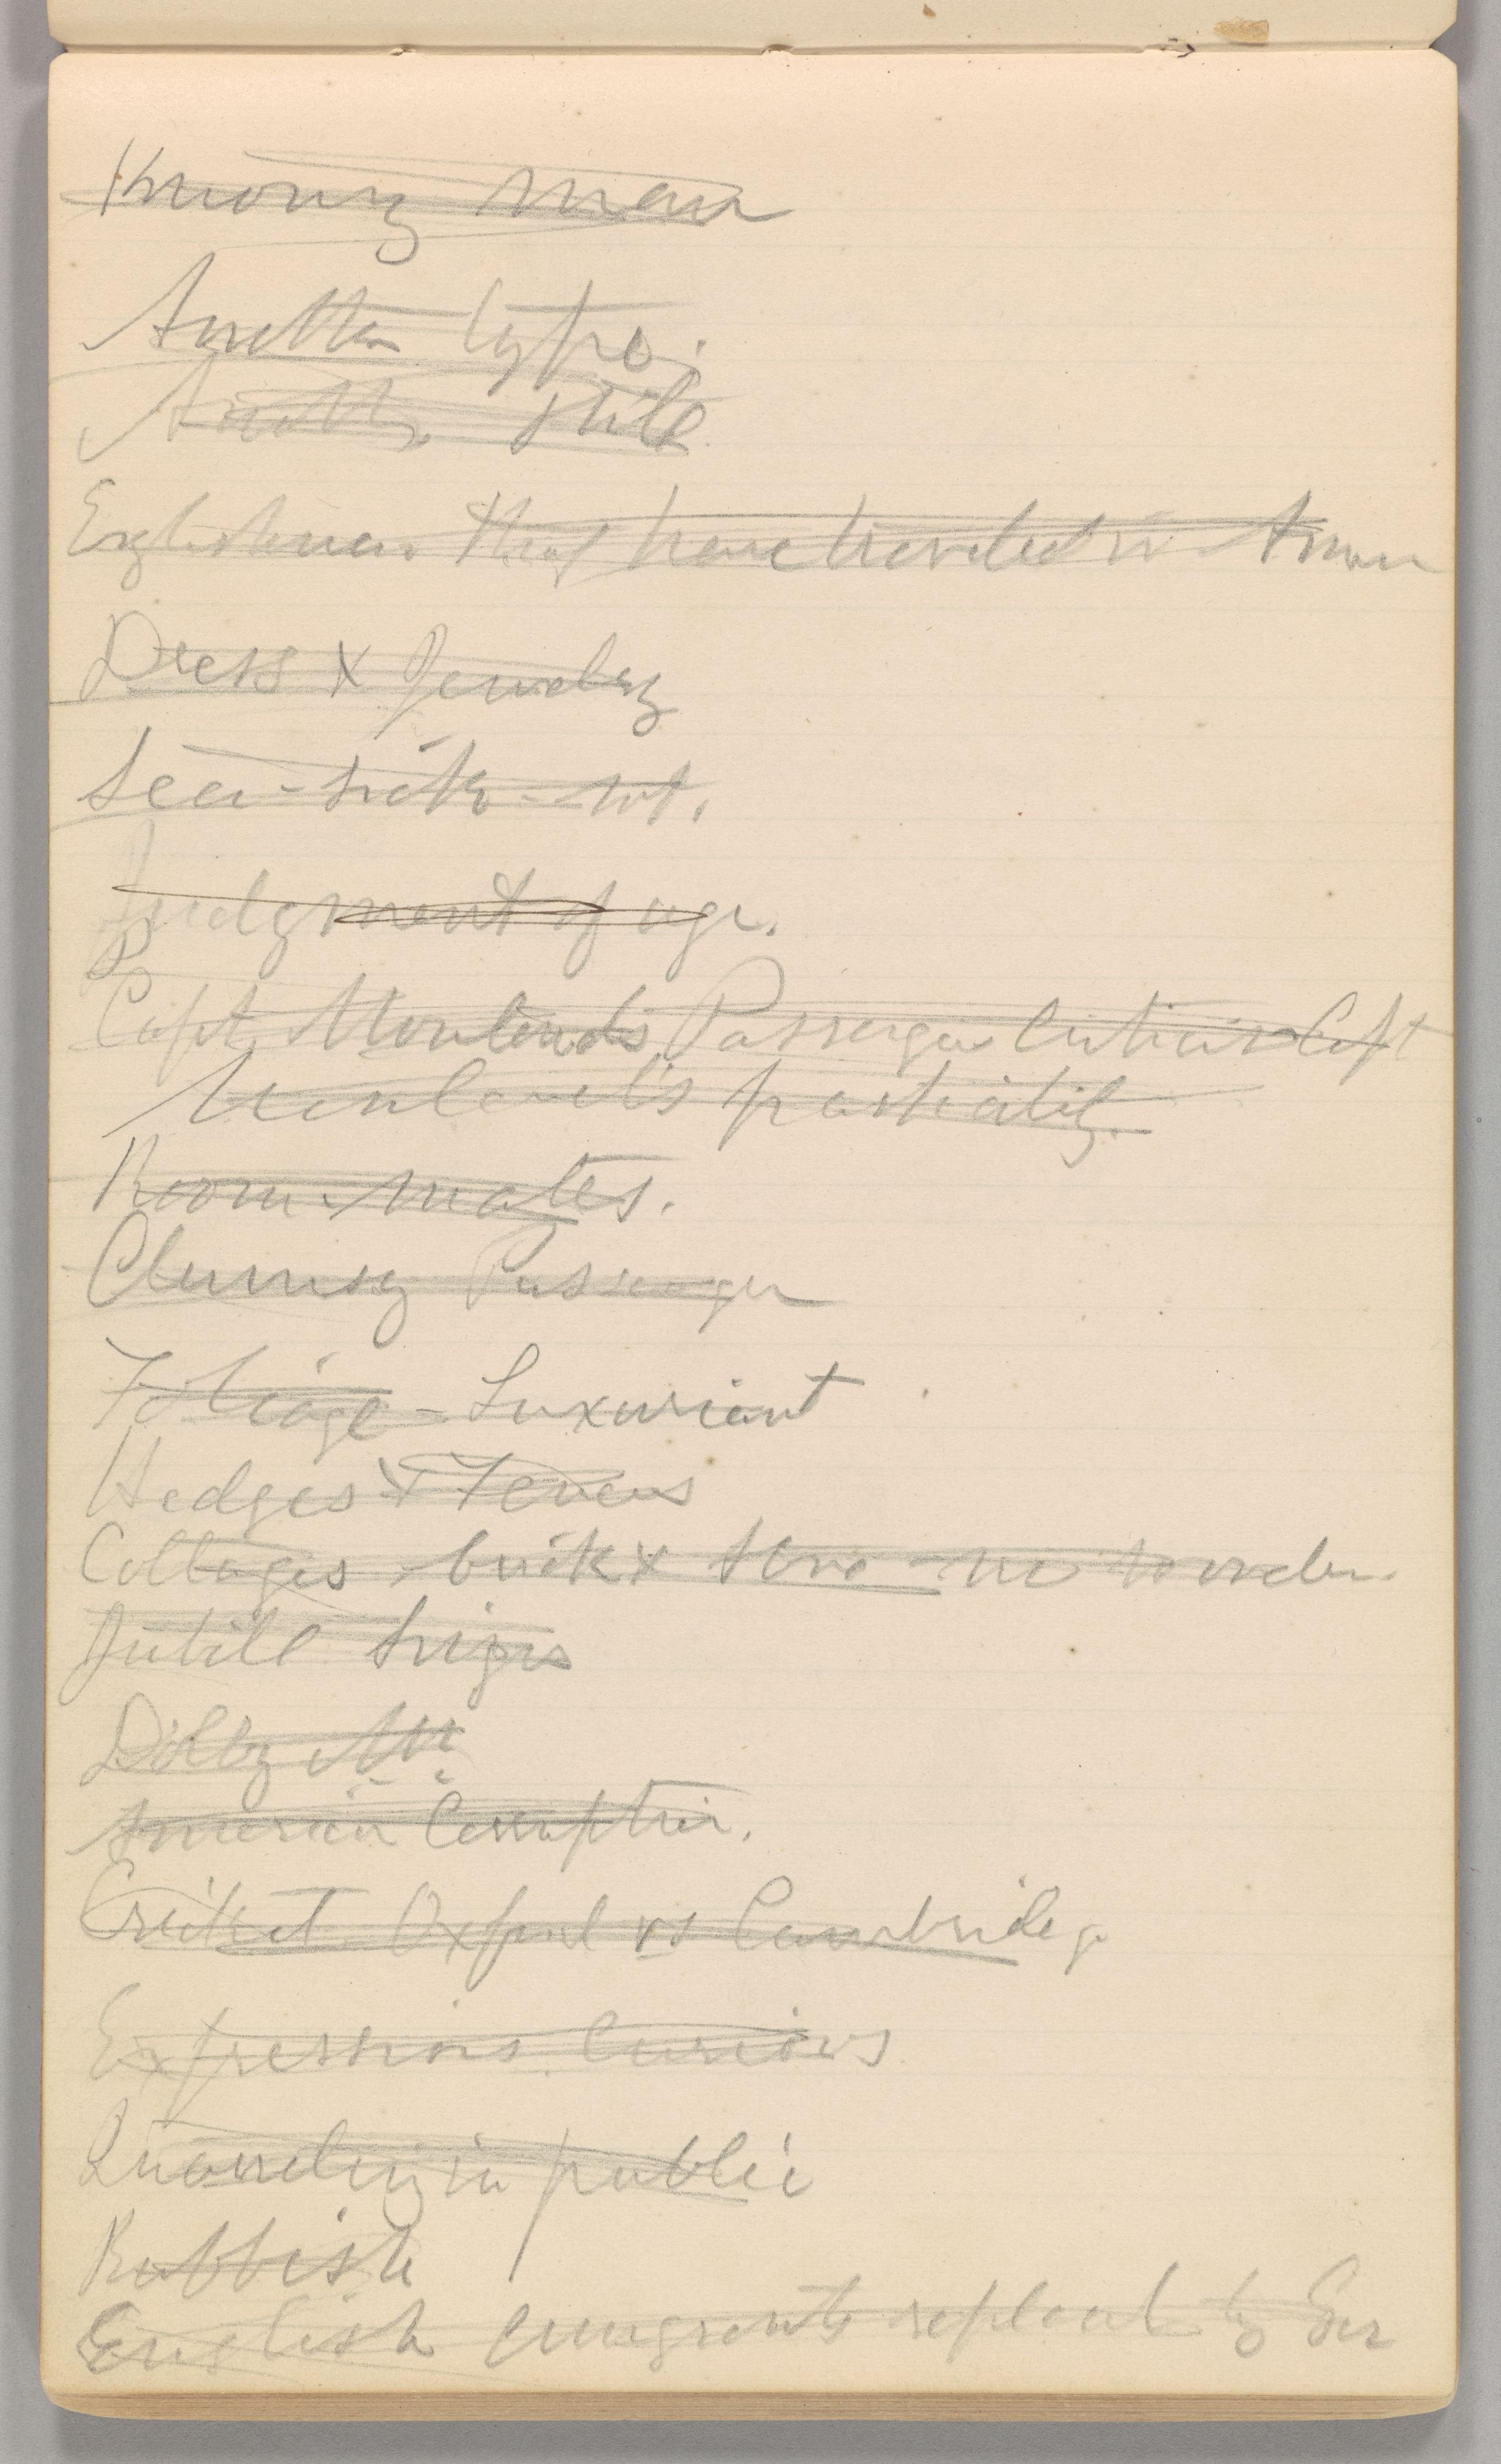 Knowing Man
Another type.
Another Stile
Englishmen that have traveled in Amer
Dress & Jewelry
Sea-sick - not.
Judgment of age.
Capt. Passenger Criticise Capt
partiality.
Room-mates.
Clumsy Passenger
Foliage - Luxuriant
Hedges & Fences
Cottages - brick & stone - no wooden
Jubilee Signs
Dolby
American Corruption.
Cricket Oxford vs Cambridge
Expressions Curious
Quarreling in public
Rubbish
English emigrants replaced by Ger